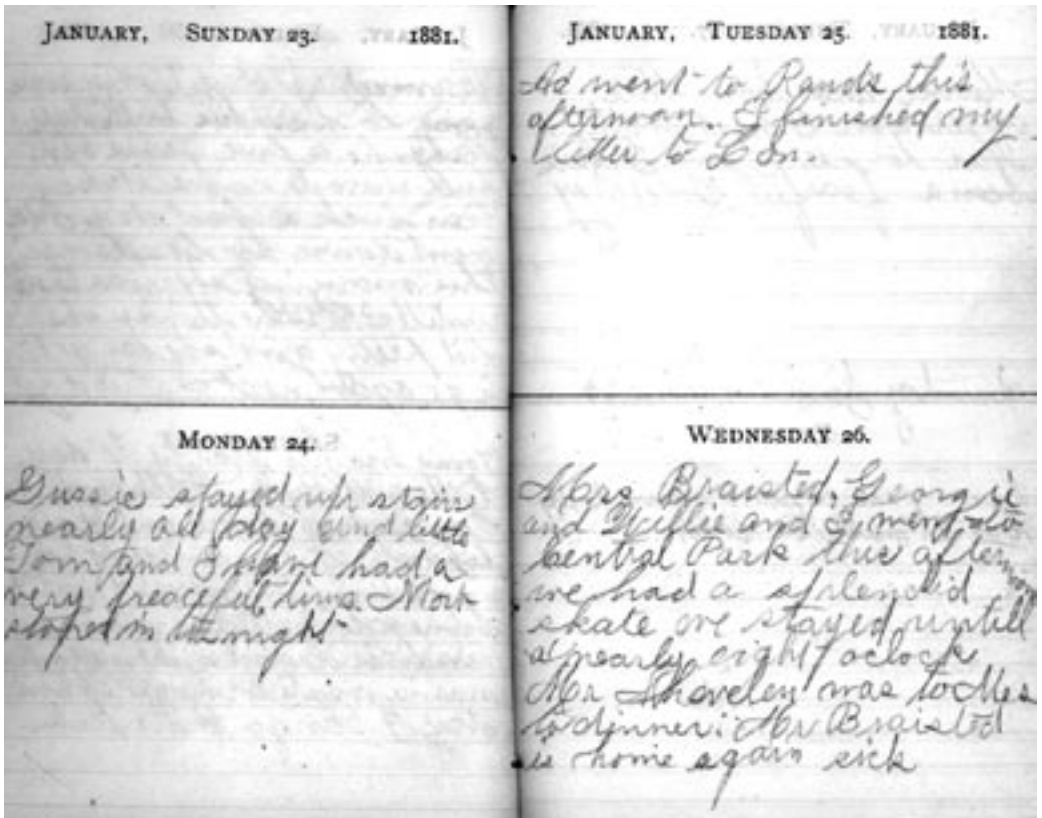 JANUARY, SUNDAY 23. 1881.
MONDAY 24.
Gussie stayed up stairs
nearly all day and little
Tom and I have had a
very peaceful time. Mort
stoped in to night
JANUARY, TUESDAY 25. 1881.
Ad went to Rands this
afternoon. I finished my
letter to Em.
WEDNESDAY 26.
Mrs Braisted, Georgie
and Willie and I went to
Central Park this afternoon
we had a splendid
skate we stayed untill
nearly eight oclock
Mr was to Mrs
to dinner. Mr Braisted
is home again sick